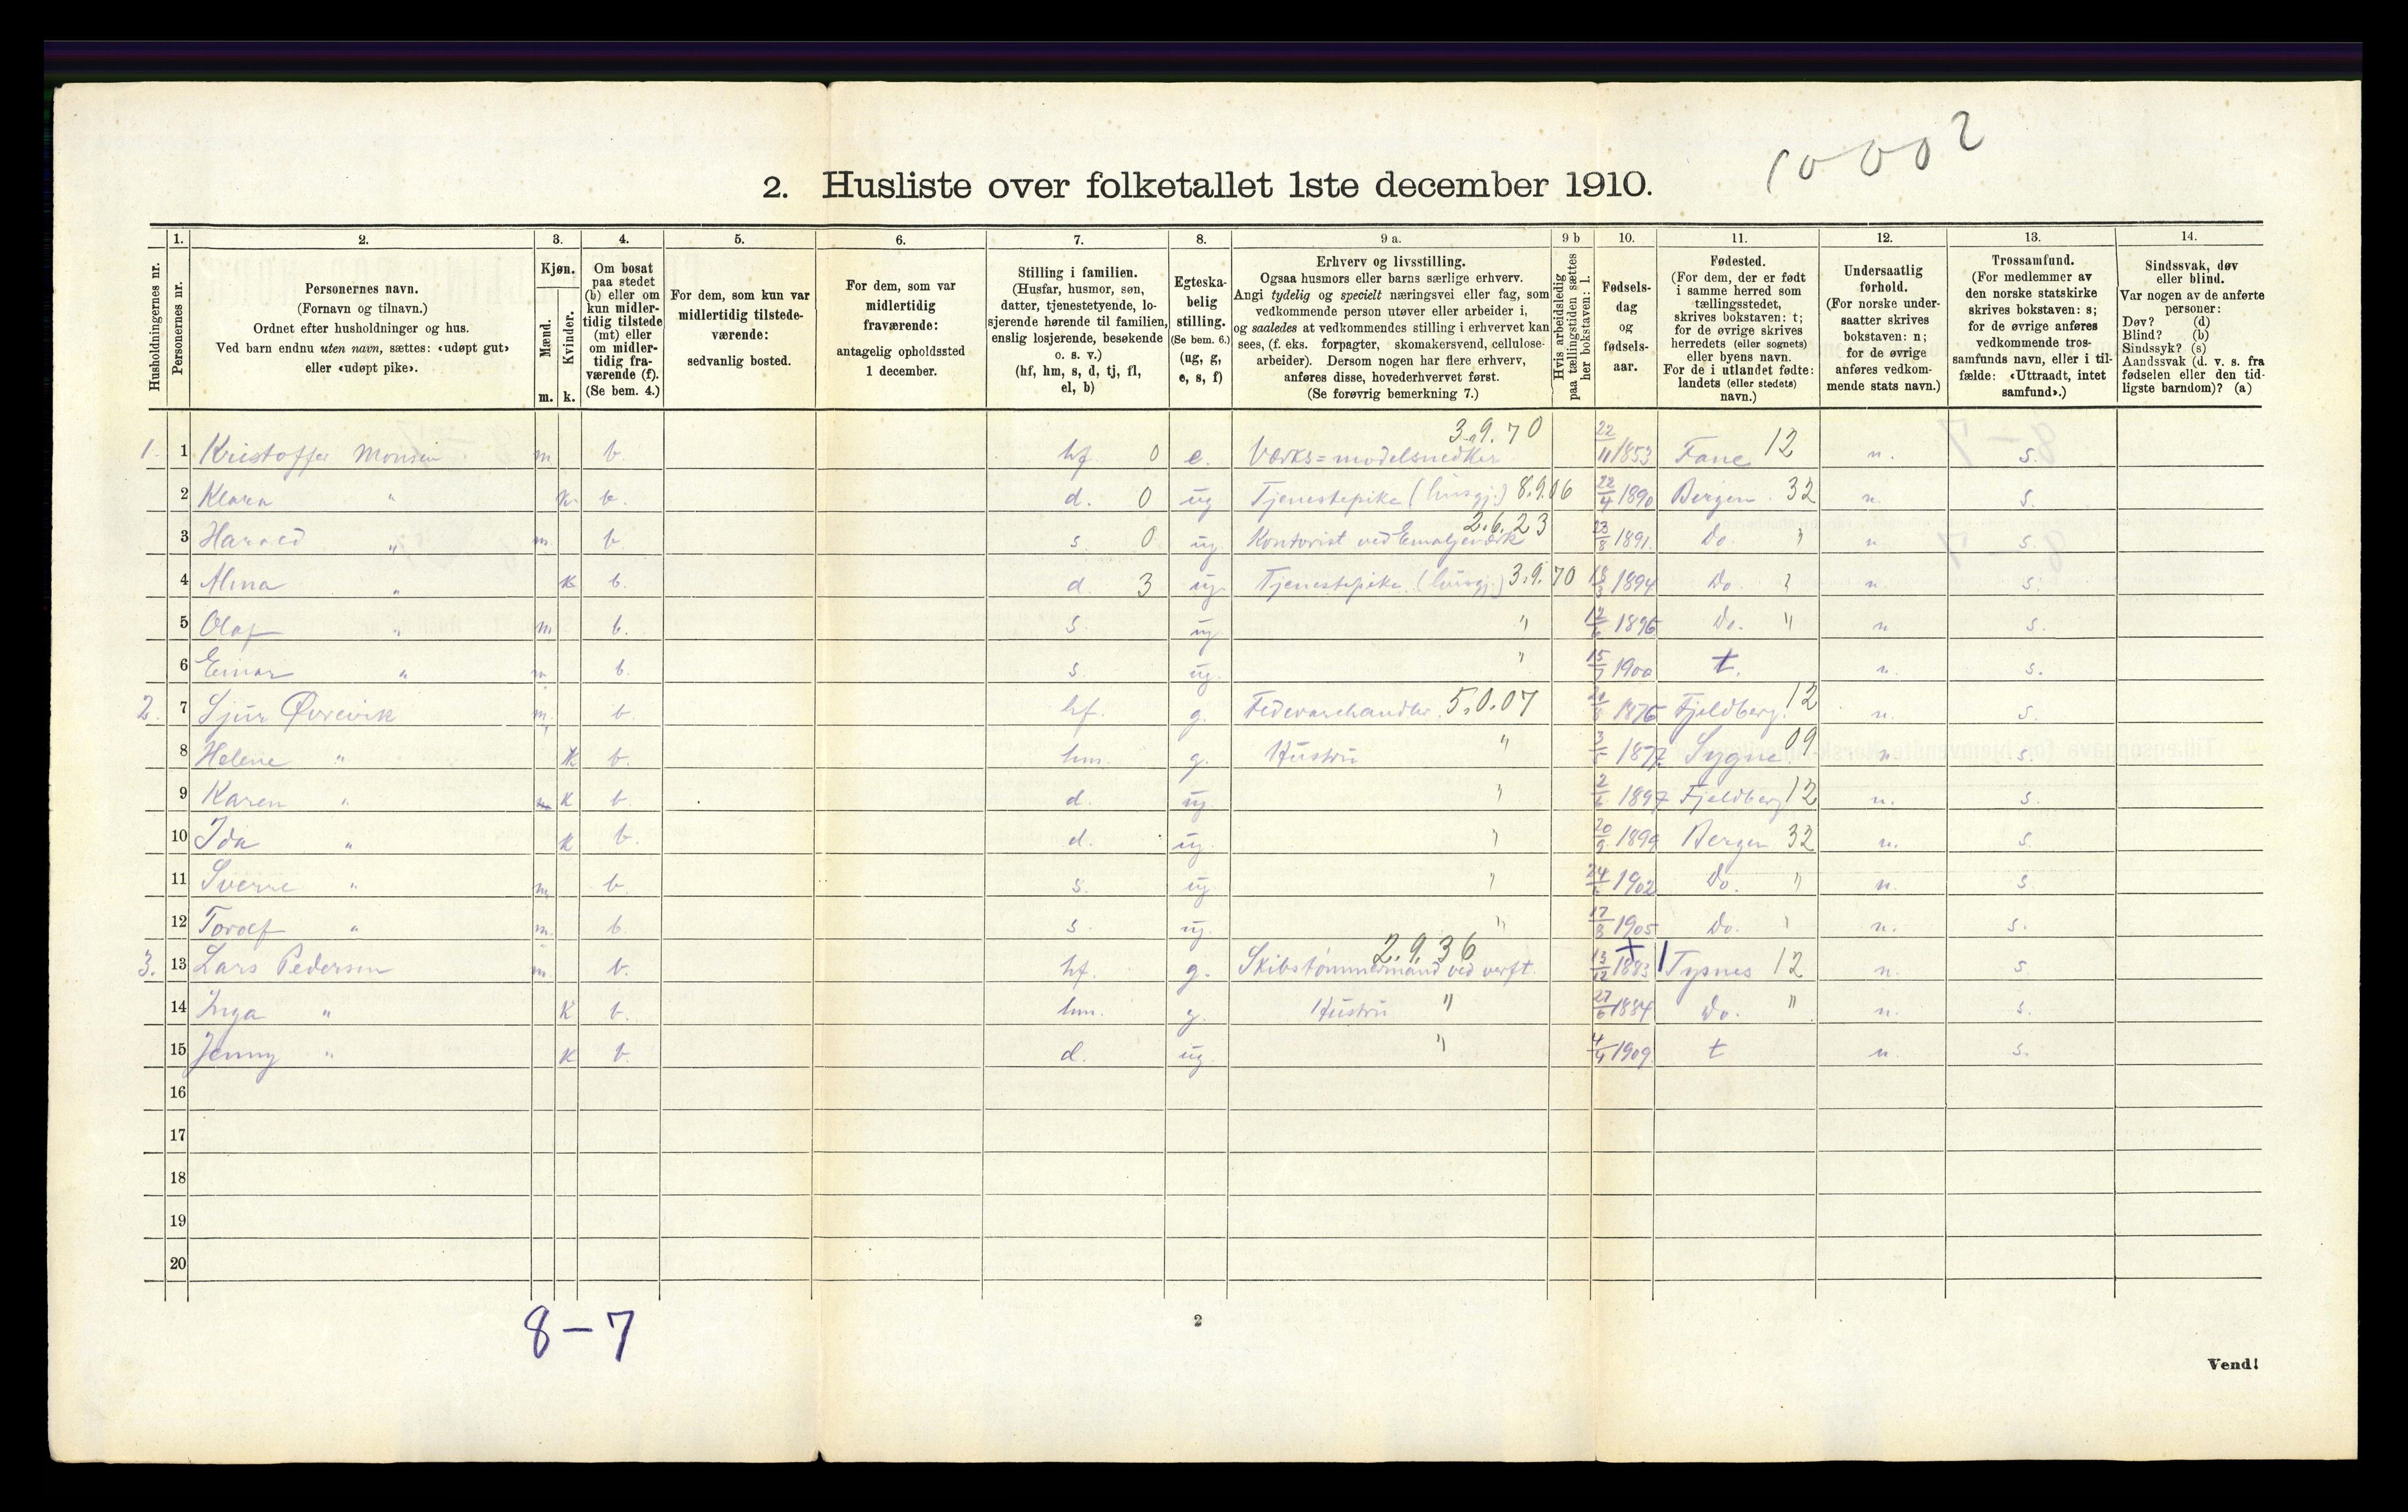 10002
2. Husliste over folketallet 1ste december 1910.
Husholdningernes nr.
1. Personernes nr.
2. Personernes navn. (Fornavn og tilnavn.) Ordnet efter husholdninger og hus. Ved barn endnu uten navn, sættes: «udøpt gut» eller «udøpt pike».
3. Kjøn. Mænd. m. Kvinder. k.
4. Om bosat paa stedet (b) eller om kun midlertidig tilstede (mt) eller om midlertidig fraværende (f). (Se bem. 4.)
5. For dem, som kun var midlertidig tilstedeværende: sedvanlig bosted.
6. For dem, som var midlertidig fraværende: antagelig opholdssted 1 december.
7. Stilling i familien. (Husfar, husmor, søn, datter, tjenestetyende, losjerende hørende til familien, enslig losjerende, besøkende o. s. v.) (hf, hm, s, d, tj, fl, el, b)
8. Egteskabelig stilling. (Se bem. 6.) (ug, g, e, s, f)
9 a. Erhverv og livsstilling. Ogsaa husmors eller barns særlige erhverv. Angi tydelig og specielt næringsvei eller fag, som vedkommende person utøver eller arbeider i, og saaledes at vedkommendes stilling i erhvervet kan sees, (f. eks. forpagter, skomakersvend, cellulosearbeider). Dersom nogen har flere erhverv, anføres disse, hovederhvervet først. (Se forøvrig bemerkning 7.)
9 b Hvis arbeidsledig paa tællingstiden sættes her bokstaven: l.
10. Fødselsdag og fødselsaar.
11. Fødested. (For dem, der er født i samme herred som tællingsstedet, skrives bokstaven: t; for de øvrige skrives herredets (eller sognets) eller byens navn. For de i utlandet fødte: landets (eller stedets) navn.)
12. Undersaatlig forhold. (For norske undersaatter skrives bokstaven: n; for de øvrige anføres vedkommende stats navn.)
13. Trossamfund. (For medlemmer av den norske statskirke skrives bokstaven: s; for de øvrige anføres vedkommende trossamfunds navn, eller i tilfælde: «Uttraadt, intet samfund».)
14. Sindssvak, døv eller blind. Var nogen av de anførte personer: Døv? (d) Blind? (b) Sindssyk? (s) Aandssvak (d. v. s. fra fødselen eller den tidligste barndom)? (a)
1. 1 Kristoffer Monsen m b. hf 0 e. Værks=modelsnedker 3.9.70 22/11 1853 Fane 12 n. s.
2 Klara " k b. d. 0 ug Tjenestepike (husgj.) 8.9.06 22/4 1890 Bergen 32 n. s.
3 Harald " m b s. 0 ug. Kontorist ved Emaljeværk 2.6.23 23/8 1891. Do. " n s.
4 Alma " k b. d. 3 ug. Tjenestepike (husgj.) 3.9.70 1894 Do. " n. s.
5 Olaf " m b. s. ug. " 1896 Do. " n s.
6 Einar " m b. s. ug. " 15/7 1900 t. n. s.
2. 7 Sjur Øvrevik m. b. hf. g. Fedevarehandler 5.0.07 1876 Fjeldberg. 12 n. s.
8 Helene " k b. hm. g. Hustru " 3/5 1877. Sygne 09 n. s.
9 Karen " k b. d. ug. " 2/6 1897 Fjeldberg 12 n. s.
10 Ida " k b. d. ug. " 20/9 1899 Bergen 32 n. s.
11 Sverre " m b. s. ug " 1902 Do. " n. s
12 Torolf " m. b. s. ug. " 17/3 1905 Do. " n. s.
3. 13 Lars Pedersen m. b. hf. g. Skibstømmermand ved verft. 2.9.36 13/12 1883 Tysnes 12 n. s
14 Inga " k b. hm. g. Hustru " 27/6 1884 Do. " n. s.
15 Jenny " k b. d. ug. " 4/4 1909. t n. s.
16
17
18
19
20
8-7
2
Vend!